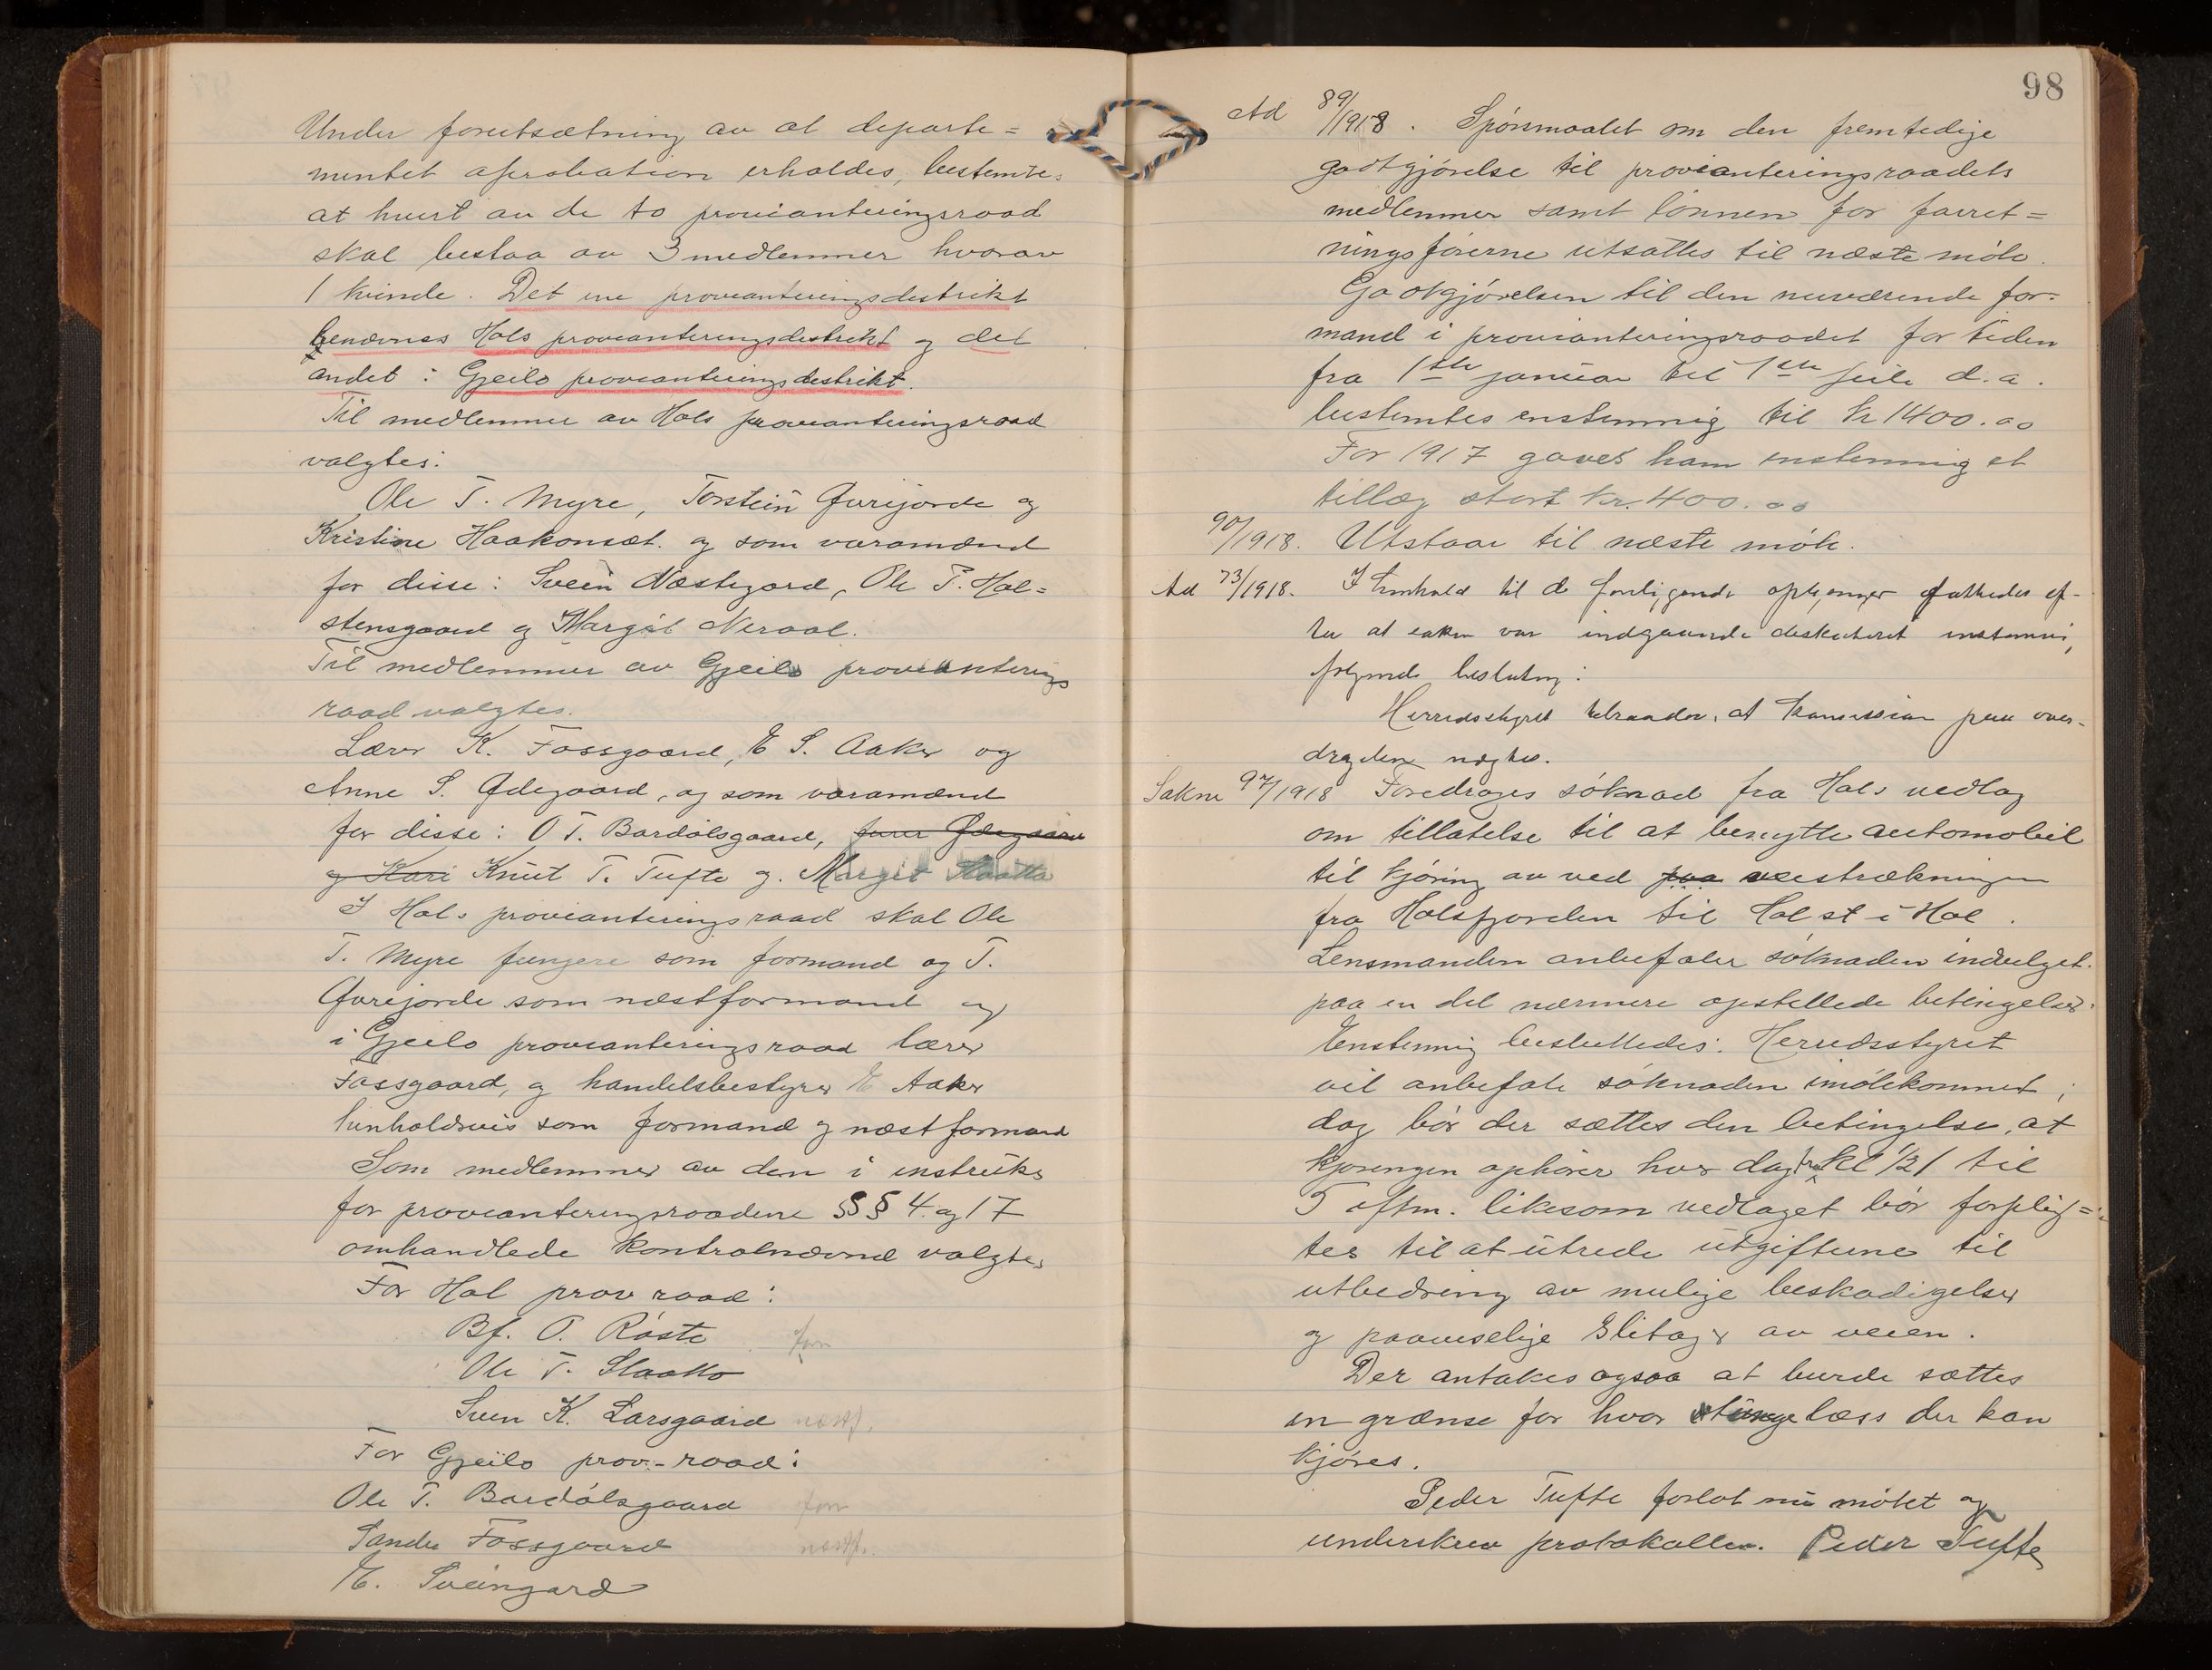 Under forutsætning av at departe=
mentet aprobation erholdes, bestemtes
at hvert av de to provianteringsraad
skal bestaa av 3 medlemmer hvorav
1 kvinde. Det ene provianteringsdestrikt
benævnes Hols provianteringsdestrikt og det
andet : Gjeilo provianteringsdestrikt.
Til medlemmer av Hols provianteringsraad
valgtes:
Ole T. Myre, Torstein Gurijorde og
Kristine Haakonsæt. og som varamænd
for disse: Svein Næstegard, Ole T. Hol=
stensgaard og Margit Neraal.
Til medlemmer av Gjeilo provianterings
raad valgtes.
Lærer K. Fossgaard, E S. Aaker og
Anne S. Ødegaard, og som varamænd
for disse: O T. Bardólsgaard, Ødegaard
og Kari Knut T. Tufte og. Margit Slaatto
I Hols provianteringsraad skal Ole
T. Myre fungere som formand og T.
Gurijorde som næstformand og
i Gjeilo provianteringsraad lærer
Fossgaard, og handelsbestyrer E Aaker
henholdsvis som formand og næstformand
Som medlemmer av den i instruks
for provianteringsraadene §§ 4 og 17
omhandlede kontrolnævnd valgtes
For Hol prov raad:
Bf. O. Röste form
Ole T. Slaatto
Sven K. Larsgaard næstf.
For Gjeilo prov.-raad:
Ole T. Bardólsgaard form
Sander Fossgaard næstf.
E. Sveingard
98
Ad 89/1918. Spörsmaalet om den fremtidige
godtgjörelse til provianteringsraadets
medlemmer samt lönnen for forret=
ningsförerne utsattes til næste möte.
Godtgjörelsen til den nuværende for=
mand i provianteringsraadet for tiden
fra 1ste januar til 1ste juli d.a.
bestemtes enstemmig til kr 1400.00
For 1917 gaves ham enstemmig et
tillæg stort kr. 400.00
90/1918. Utstaar til næste möte.
Ad 73/1918. I henhold til de foreliggende oplysninger fattedes ef-
ter at saken var indgaaende diskuteret enstemmig
følgende beslutning:
Herredsstyret tilraader, at koncession paa over-
dragelsen nægtes.
Sakne 97/1918 Foredroges söknad fra Hols vedlag
om tillatelse til at benytte automobil
til kjöring av ved paa veistrækningen
fra Holsfjorden til Hol st i Hol.
Lensmanden anbefaler söknaden indvilget.
paa en del nærmere opstillede betingelser.
Enstemmig besluttedes: Herredsstyret
vil anbefale söknaden imötekommet,
dog bör der sættes den betingelse, at
kjöringen ophörer hver dag fra kl 12 til
5 eftm. likesom vedlaget bör forplig=
tes til at utrede utgifterne til
utbedring av mulige beskadigelser
og paaviselige slitager av veien.
Der antakes ogsaa at burde sættes
en grænse for hvor tunge læss der kan
kjöres.
Peder Tufte forlot nu mötet og
underskrev protokollen. Peder Tufte